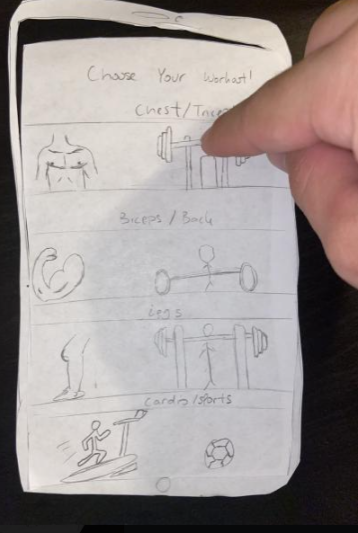 Choose Your Workout!
Chest/
Biceps / Back
Legs
Cardio/sports